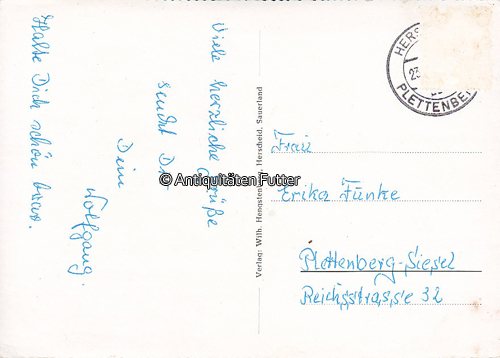 Viele herzliche Grüße
sendet Dir
Dein
Wolfgang.
Halte Dich schön brav.
Verlag: Wilh. Hengsten Herscheid, Sauerland
HERS
23
PLETTENBE
Frau
Erika Funke
Plettenberg-Siesel
Reichsstrasse 32
© Antiquitäten Futter